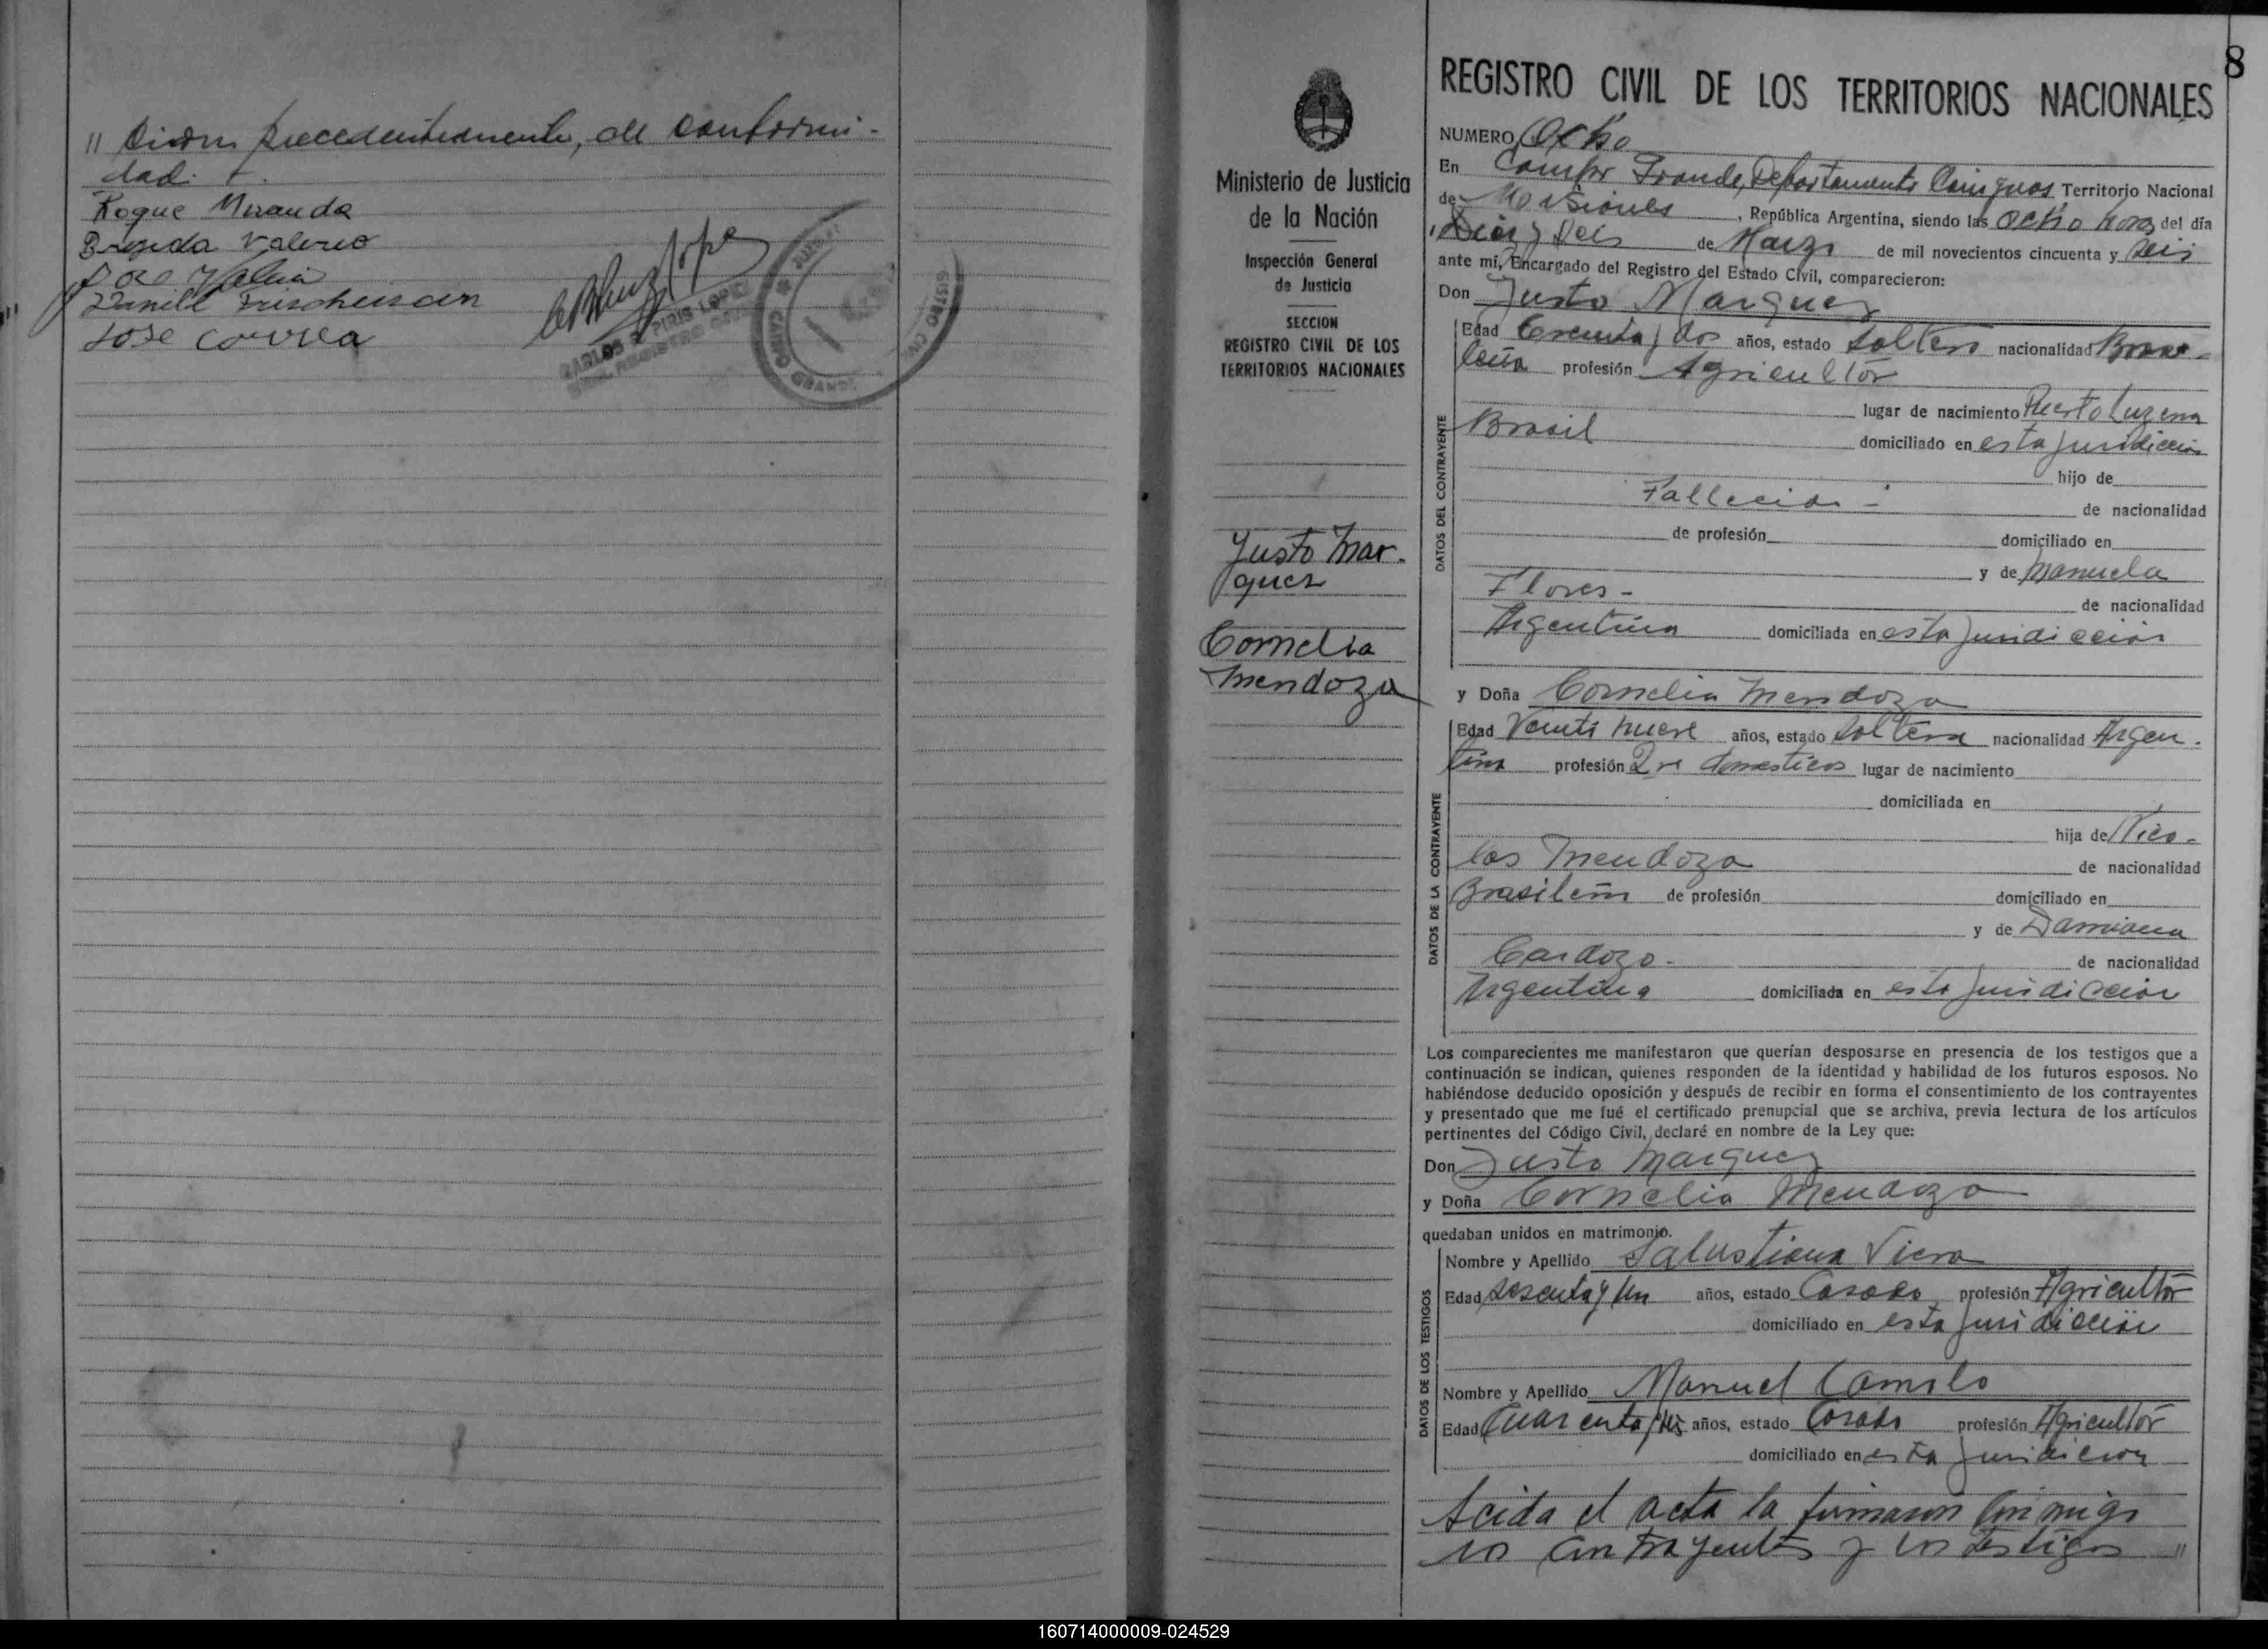 " precedentemente, de conformi-
dad.
Roque Miranda
Brígida Valerio
Jose Valerio
Daniel Frischeisen
Jose Correa
CARLOS PIRIS LOPEZ
CAMPO GRANDE
8
REGISTRO CIVIL DE LOS TERRITORIOS NACIONALES
Ministerio de Justicia
de la Nación
Inspección General
de Justicia
SECCION
REGISTRO CIVIL DE LOS
TERRITORIOS NACIONALES
Justo Mar-
quez
Cornelia
Mendoza
NUMERO Ocho
En Campo Grande, Departamento Cainguas, Territorio Nacional
de Misiones, República Argentina, siendo las ocho horas del día
Diez y seis de Marzo de mil novecientos cincuenta y seis
ante mí, Encargado del Registro del Estado Civil, comparecieron:
Don Justo Marquez
DATOS DEL CONTRAYENTE
Edad treinta y dos años, estado soltero nacionalidad Brasi-
leña profesión Agricultor
lugar de nacimiento Puerto Luzena
Brasil domiciliado en esta juridiccion
hijo de
Fallecido - de nacionalidad
de profesión domiciliado en
y de Manuela
Flores - de nacionalidad
Argentina domiciliada en esta juridiccion
y Doña Cornelia Mendoza
DATOS DE LA CONTRAYENTE
Edad Veinti nueve años, estado soltera nacionalidad Argen-
tina profesión Q. domesticos lugar de nacimiento
domiciliada en
hija de Nico-
las Mendoza de nacionalidad
Brasileña de profesión domiciliado en
y de Damiana
Cardozo - de nacionalidad
Argentina domiciliada en esta juridiccion
Los comparecientes me manifestaron que querían desposarse en presencia de los testigos que a
continuación se indican, quienes responden de la identidad y habilidad de los futuros esposos. No
habiéndose deducido oposición y después de recibir en forma el consentimiento de los contrayentes
y presentado que me fué el certificado prenupcial que se archiva, previa lectura de los artículos
pertinentes del Código Civil, declaré en nombre de la Ley que:
Don Justo Marquez
y Doña Cornelia Mendoza
quedaban unidos en matrimonio.
DATOS DE LOS TESTIGOS
Nombre y Apellido Salustiana Viera
Edad sesenta y un años, estado Casado profesión Agricultor
domiciliado en esta juridiccion
Nombre y Apellido Manuel Camilo
Edad Cuarenta y años, estado Casado profesión Agricultor
domiciliado en esta juridicion
Leida el acta la firmaron conmigo
los contrayentes y los testigos "
160714000009-024529